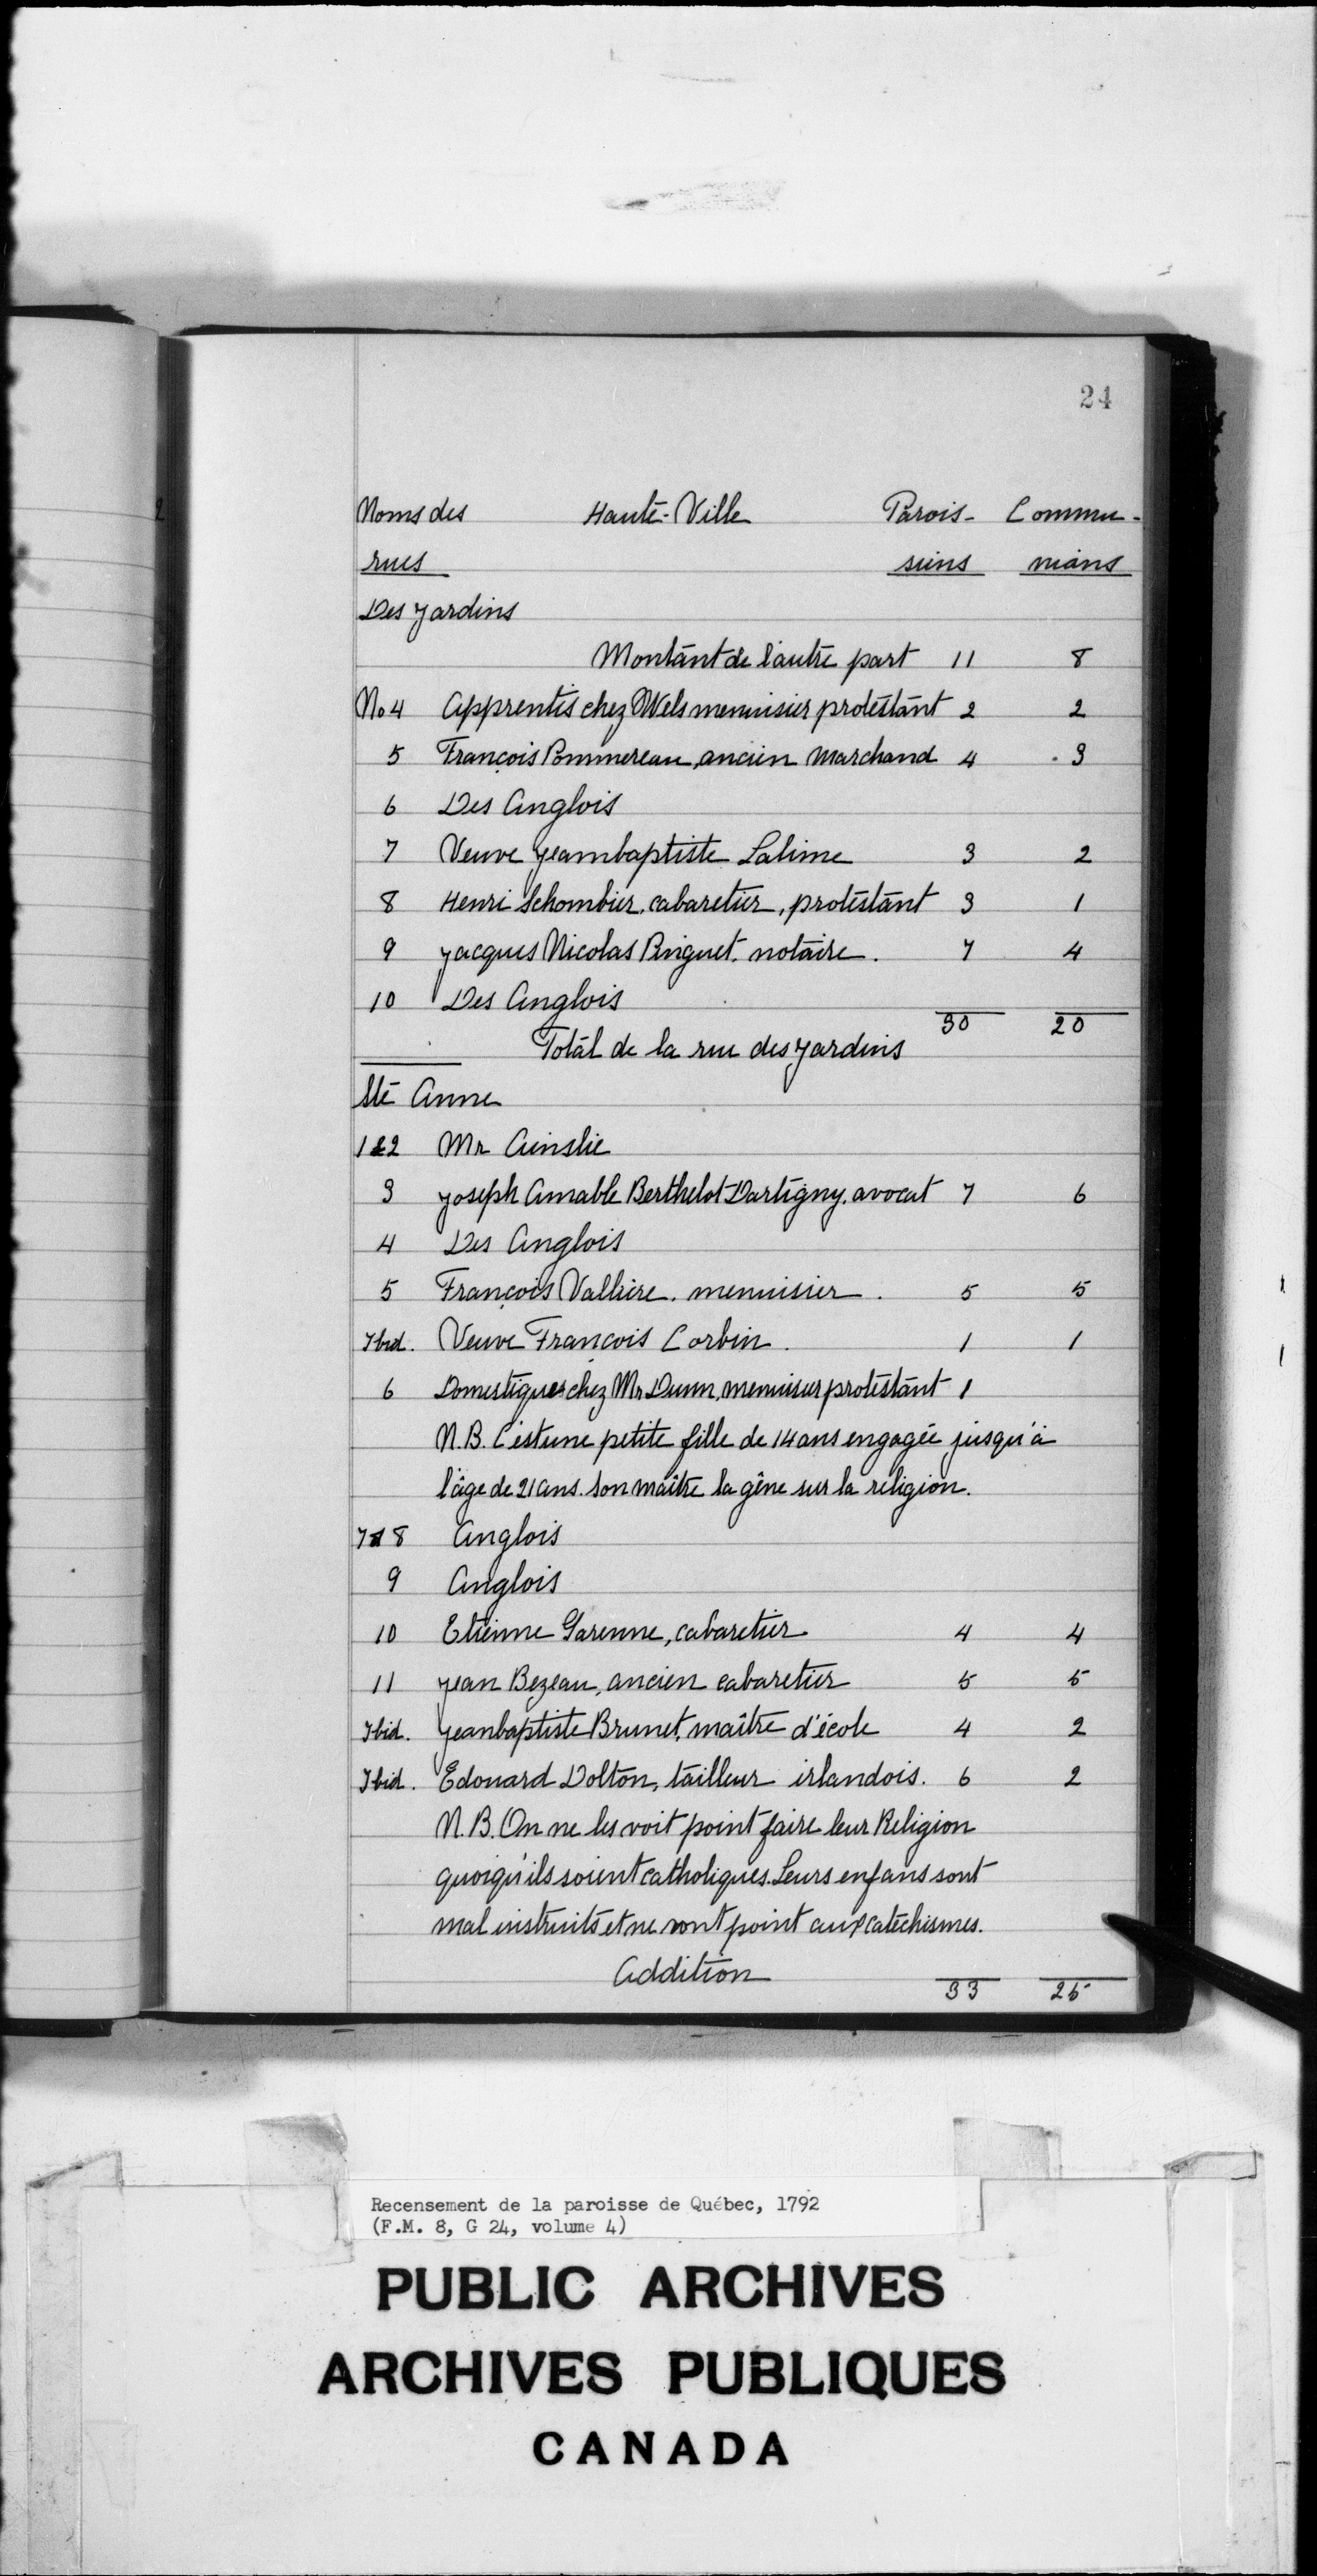 24
Noms des Haute-Ville Parois- Commu-
rues siens nians
Des Jardins
Montant de l'autre part 11 8
No 4 Apprentis chez Wels menuisier protestant 2 2
5 François Pommereau, ancien Marchand 4 3
6 Des Anglois
7 Veuve Jeanbaptiste Lalime 3 2
8 Henri Schombier, cabaretier, protestant 3 1
9 Jacques Nicolas Pinguet, notaire. 7 4
10 Des Anglois
30 20
Total de la rue des Jardins
Ste Anne
1&2 Mr Ainslie
3 Joseph Amable Berthelot Dartigny, avocat 7 6
4 Des Anglois
5 François Vallière, menuisier. 5 5
Ibid. Veuve François Corbin. 1 1
6 Domestiques chez Mr Dunn, menuisier protestant 1
N.B. C'est une petite fille de 14 ans engagée jusqu'à
l'âge de 21 ans. Son maître la gêne sur la religion.
7 8 Anglois
9 Anglois
10 Etienne Garenne, cabaretier 4 4
11 Jean Bezeau, ancien cabaretier 5 5
Ibid. Jeanbaptiste Brunet, maître d'école 4 2
Ibid. Edouard Dolton, tailleur irlandois. 6 2
N.B. On ne les voit point faire leur Religion
quoiqu'ils soient catholiques. Leurs enfans sont
mal instruits et ne vont point aux catéchismes.
Addition
33 25
Recensement de la paroisse de Québec, 1792
(F.M. 8, G 24, volume 4)
PUBLIC ARCHIVES
ARCHIVES PUBLIQUES
CANADA